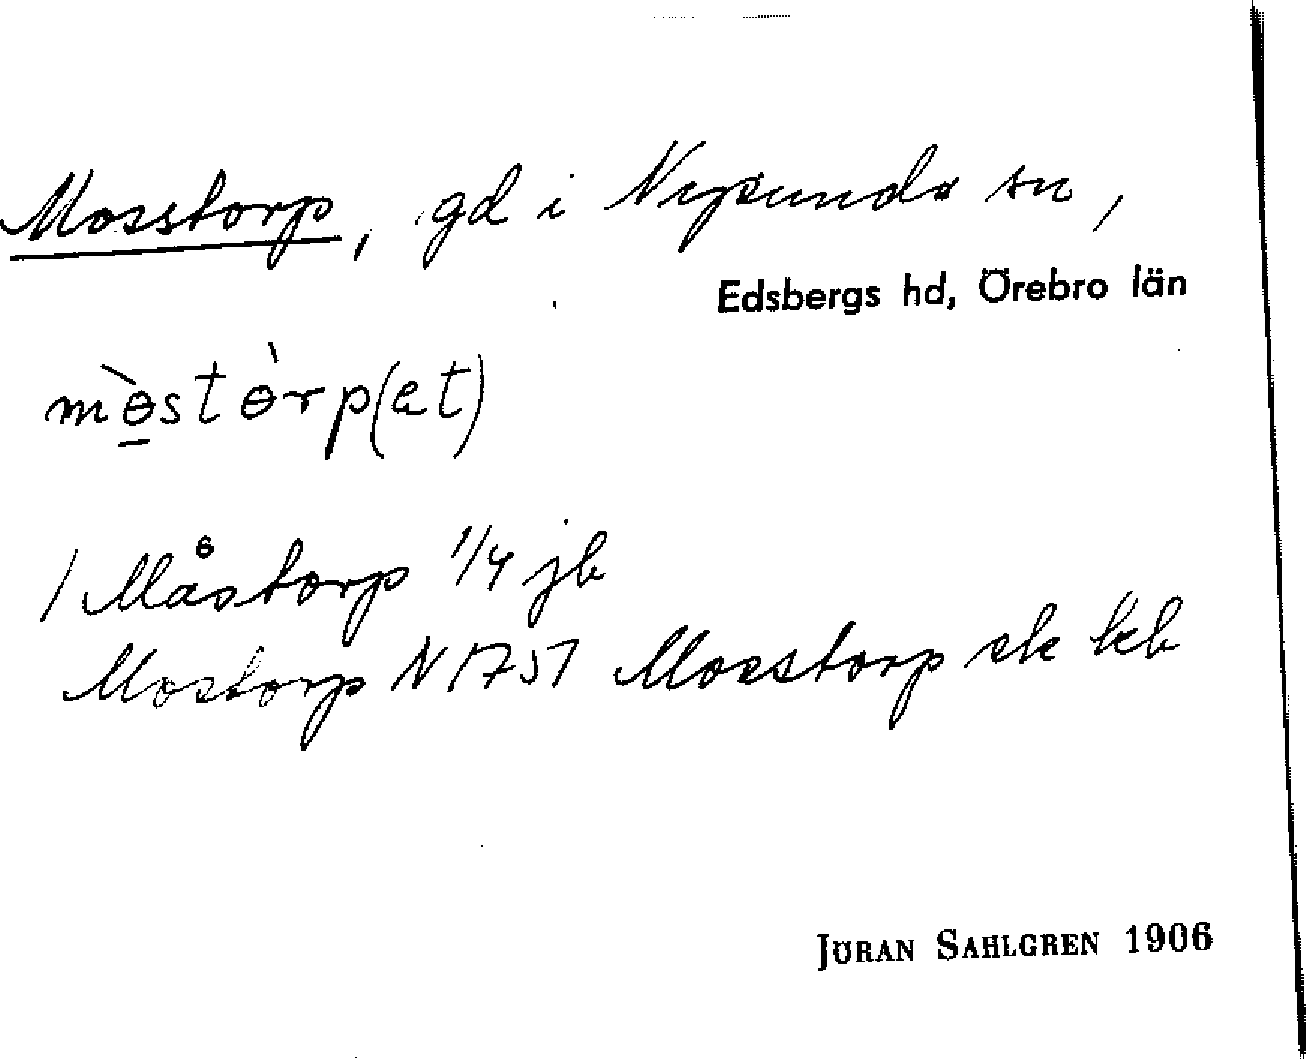 Mosstorp, gd i Nysunds sn,
Edsbergs hd, Örebro län
mòstòrp(et)
1 Måstorp 1/4 jb
Mostorp N 1757 Mosstorp ek kb
JÖRAN SAHLGREN 1906